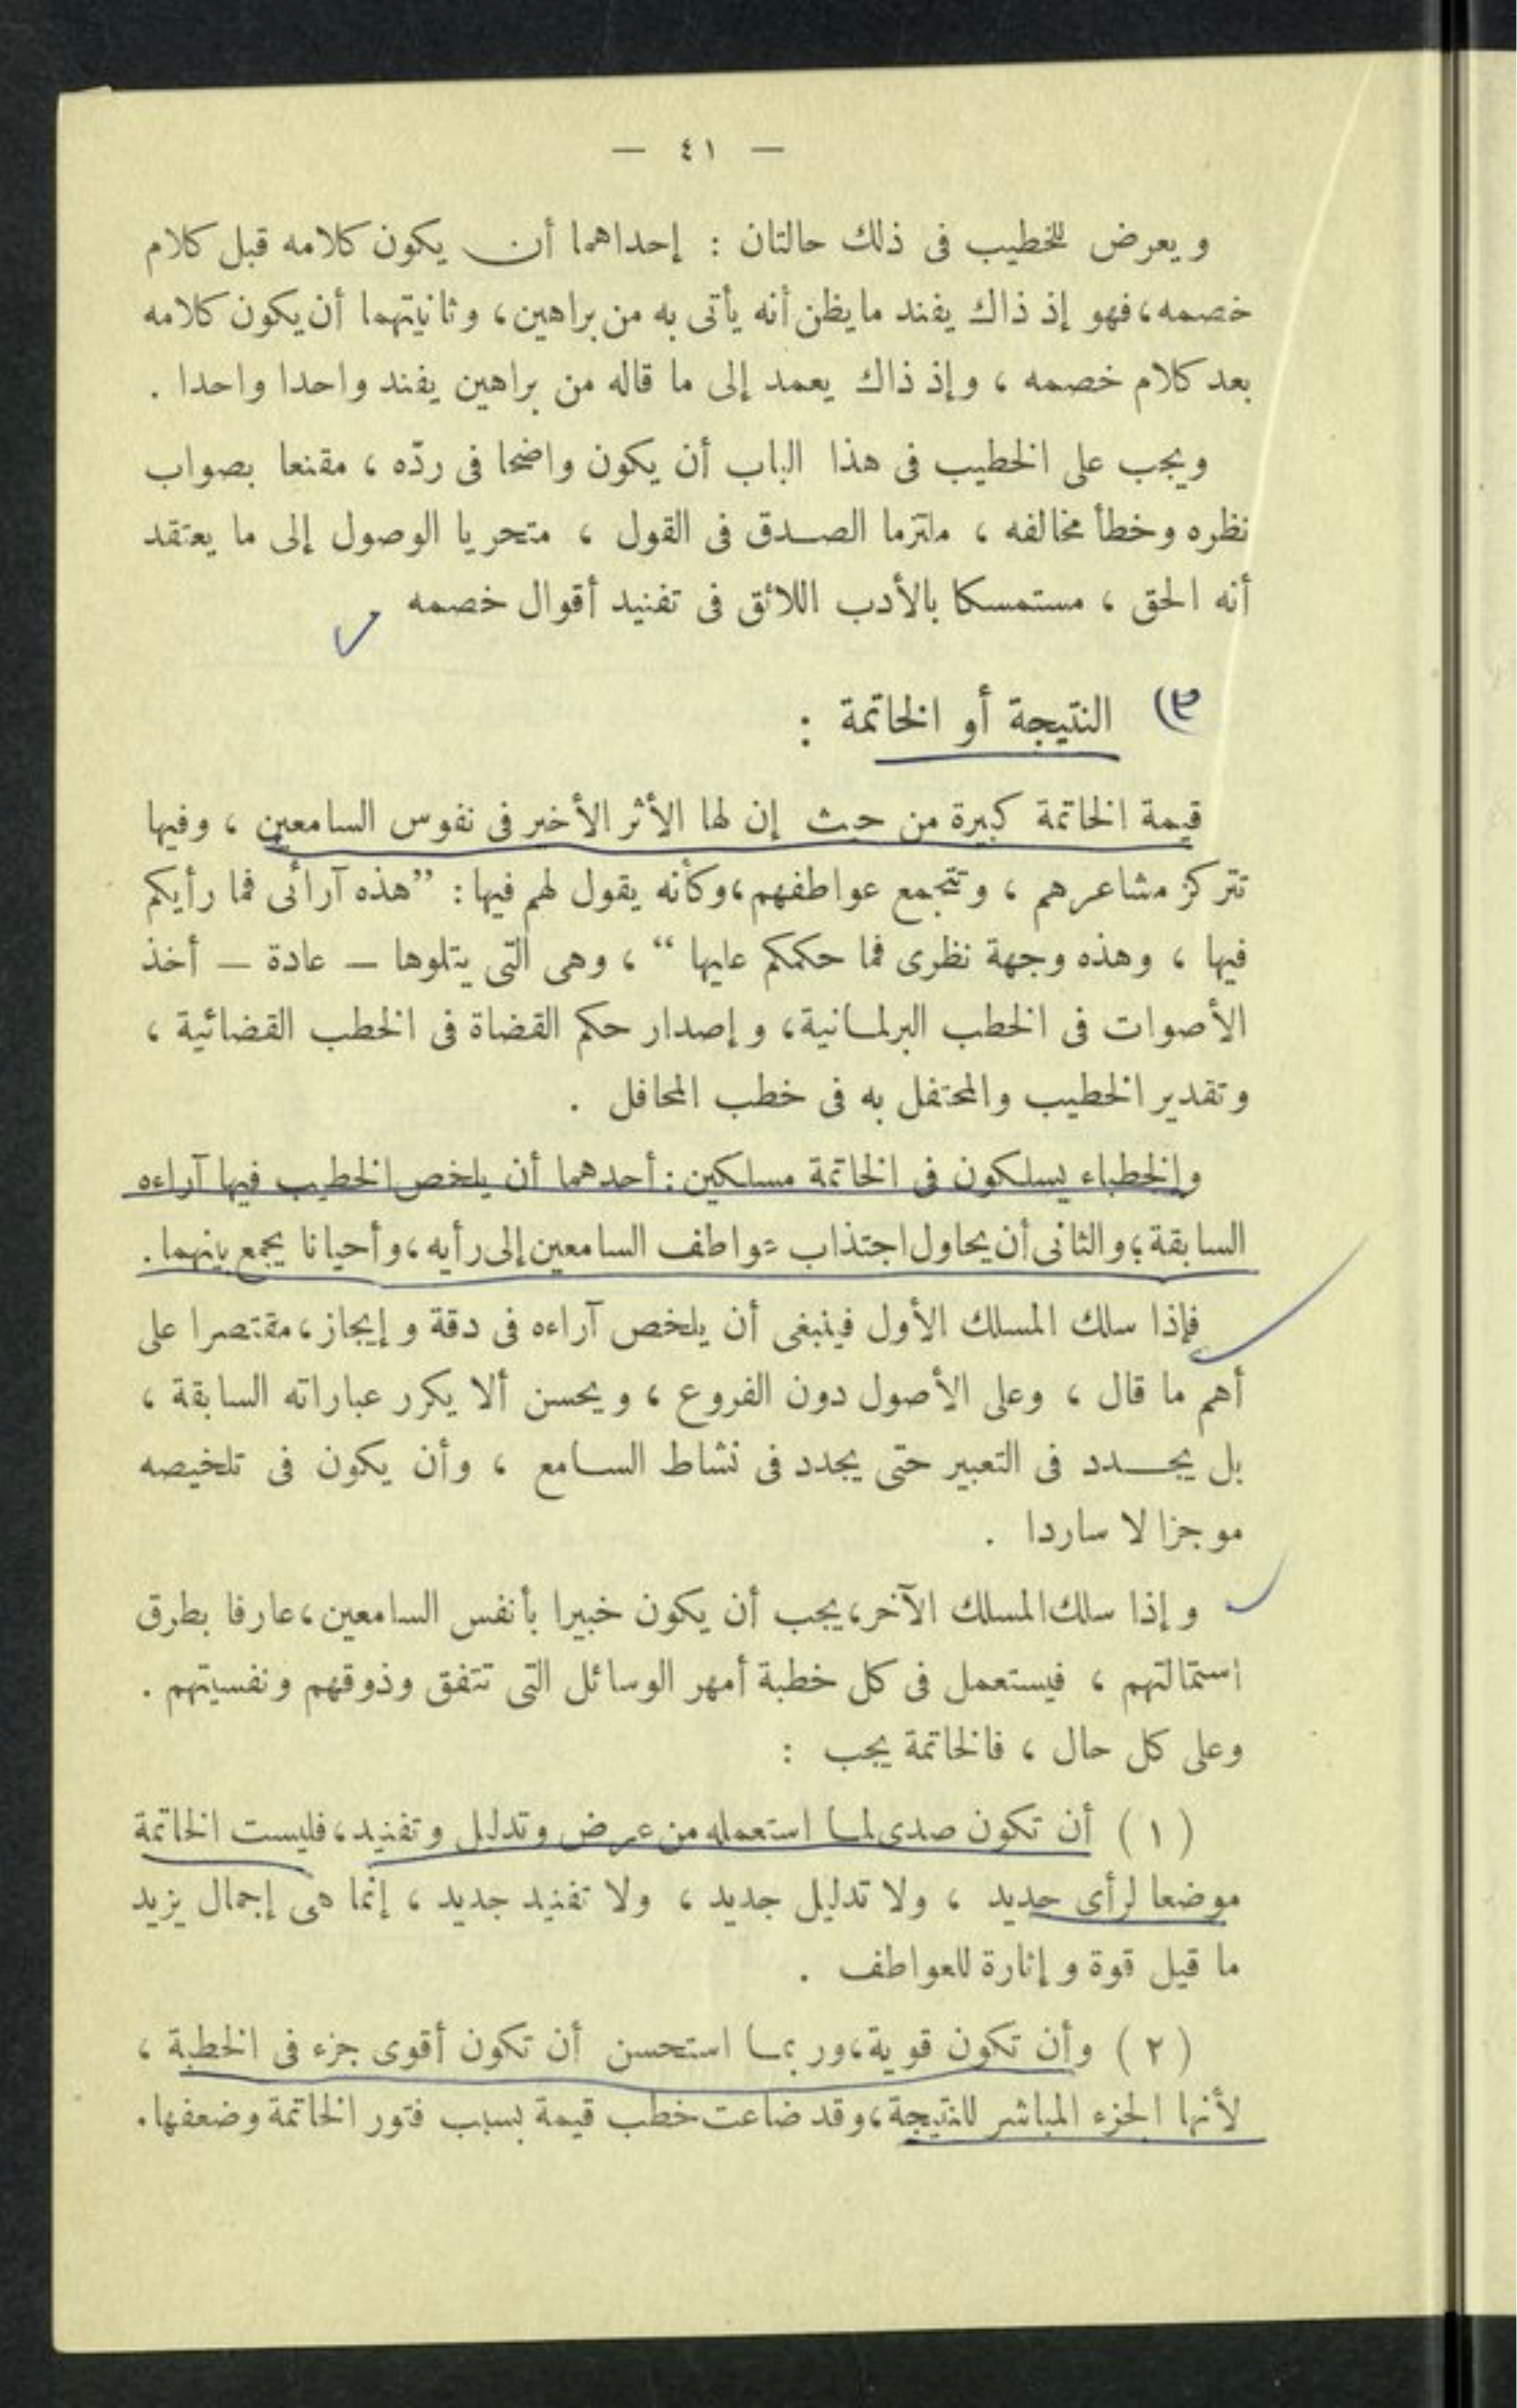 — ٤١ —
ويعرض للخطيب فى ذلك حالتان : إحداهما أن يكون كلامه قبل كلام
خصمه، فهو إذ ذاك يفند ما يظن أنه يأتى به من براهين، وثانيتهما أن يكون كلامه
بعد كلام خصمه ، وإذ ذاك يعمد إلى ما قاله من براهين يفند واحدا واحدا .
ويجب على الخطيب فى هذا الباب أن يكون واضحا فى ردّه ، مقنعا بصواب
نظره وخطأ مخالفه ، ملتزما الصدق فى القول ، متحريا الوصول إلى ما يعتقد
أنه الحق ، مستمسكا بالأدب اللائق فى تفنيد أقوال خصمه
٣) النتيجة أو الخاتمة :
قيمة الخاتمة كبيرة من حيث إن لها الأثر الأخير فى نفوس السامعين ، وفيها
تتركز مشاعرهم ، وتتجمع عواطفهم، وكأنه يقول لهم فيها : ”هذه آرائى فما رأيكم
فيها ، وهذه وجهة نظرى فما حكمكم عليها “ ، وهى التى يتلوها — عادة — أخذ
الأصوات فى الخطب البرلمانية، وإصدار حكم القضاة فى الخطب القضائية ،
وتقدير الخطيب والمحتفل به فى خطب المحافل .
والخطباء يسلكون فى الخاتمة مسلكين : أحدهما أن يلخص الخطيب فيها آراءه
السابقة؛ والثانى أن يحاول اجتذاب عواطف السامعين إلى رأيه، وأحيانا يجمع بينهما .
فإذا سلك المسلك الأول فينبغى أن يلخص آراءه فى دقة وإيجاز، مقتصرا على
أهم ما قال ، وعلى الأصول دون الفروع ، ويحسن ألا يكرر عباراته السابقة ،
بل يجدد فى التعبير حتى يجدد فى نشاط السامع ، وأن يكون فى تلخيصه
موجزا لا ساردا .
وإذا سلك المسلك الآخر، يجب أن يكون خبيرا بأنفس السامعين، عارفا بطرق
استمالتهم ، فيستعمل فى كل خطبة أمهر الوسائل التى تتفق وذوقهم ونفسيتهم .
وعلى كل حال ، فالخاتمة يجب :
( ١ ) أن تكون صدى لما استعمله من عرض وتدليل وتفنيد، فليست الخاتمة
موضعا لرأى جديد ، ولا تدليل جديد ، ولا تفنيد جديد ، إنما هى إجمال يزيد
ما قيل قوة وإثارة للعواطف .
( ٢ ) وأن تكون قوية، وربما استحسن أن تكون أقوى جزء فى الخطبة ،
لأنها الجزء المباشر للنتيجة، وقد ضاعت خطب قيمة بسبب فتور الخاتمة وضعفها .